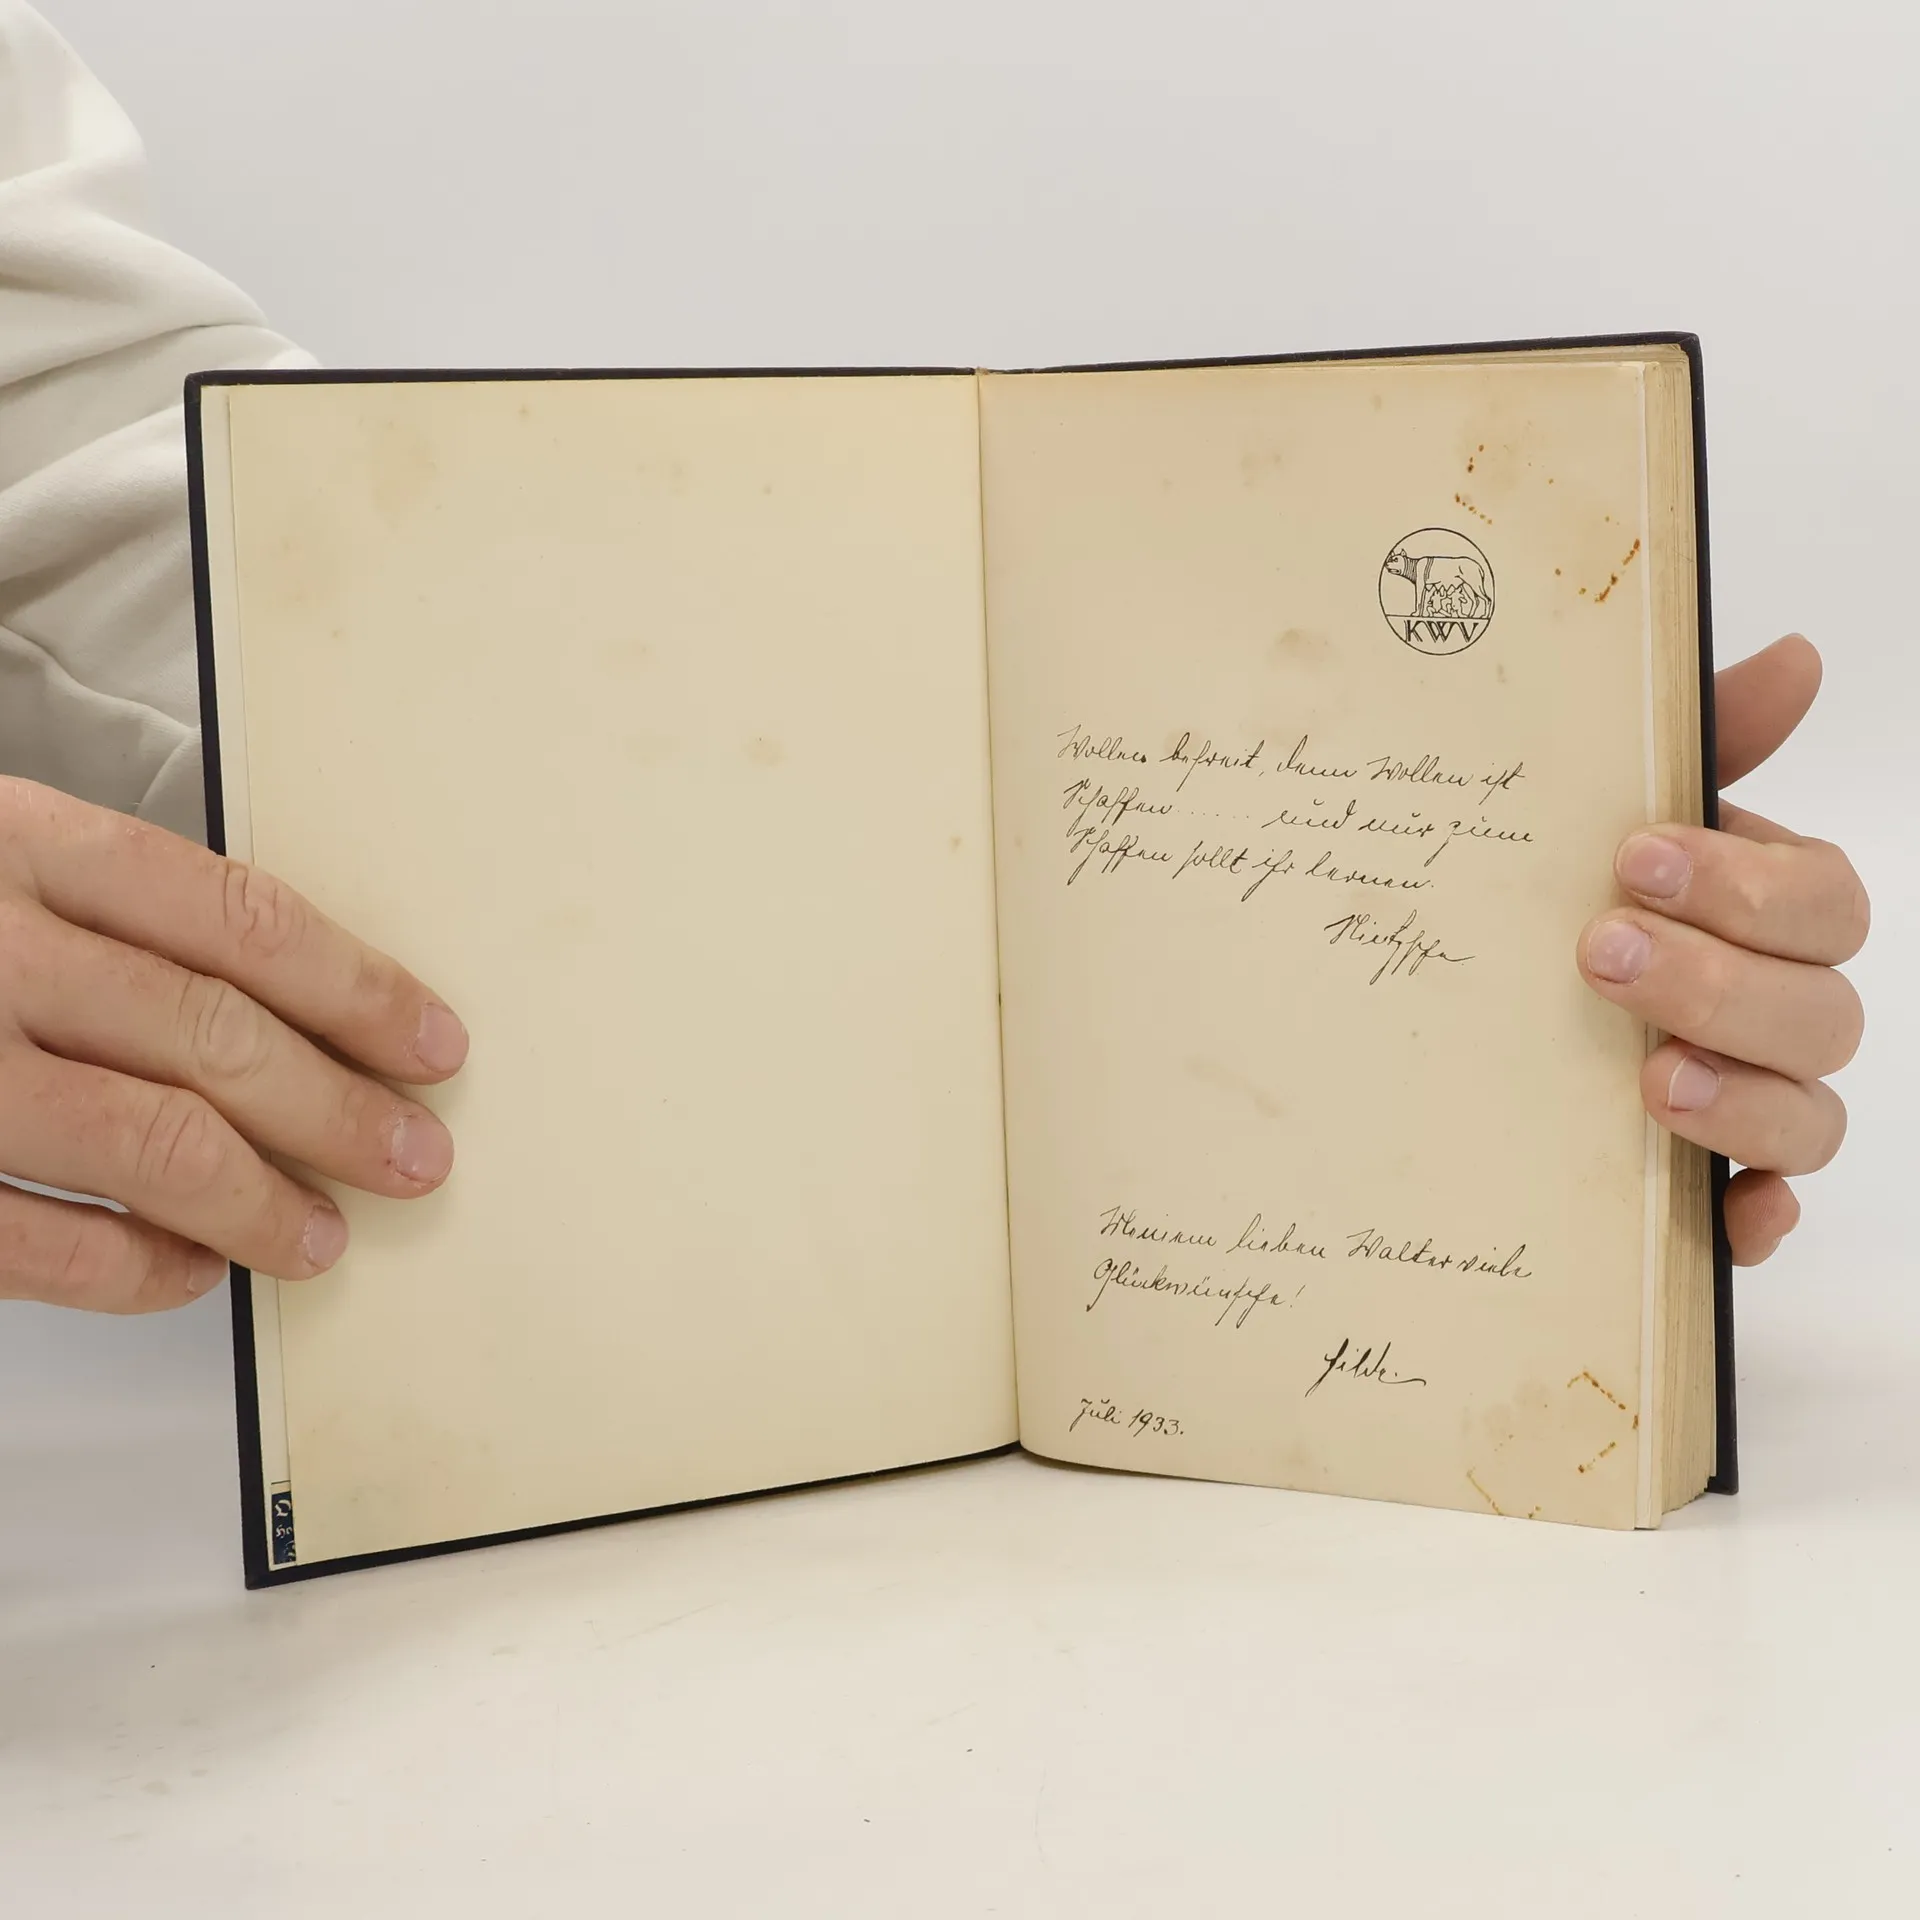 KWV
Wollen befreit, denn Wollen ist
Schaffen ...... und nur zum
Schaffen sollt ihr lernen.
Nietzsche
Meinem lieben Walter viele
Glückwünsche!
Hilde.
Juli 1933.